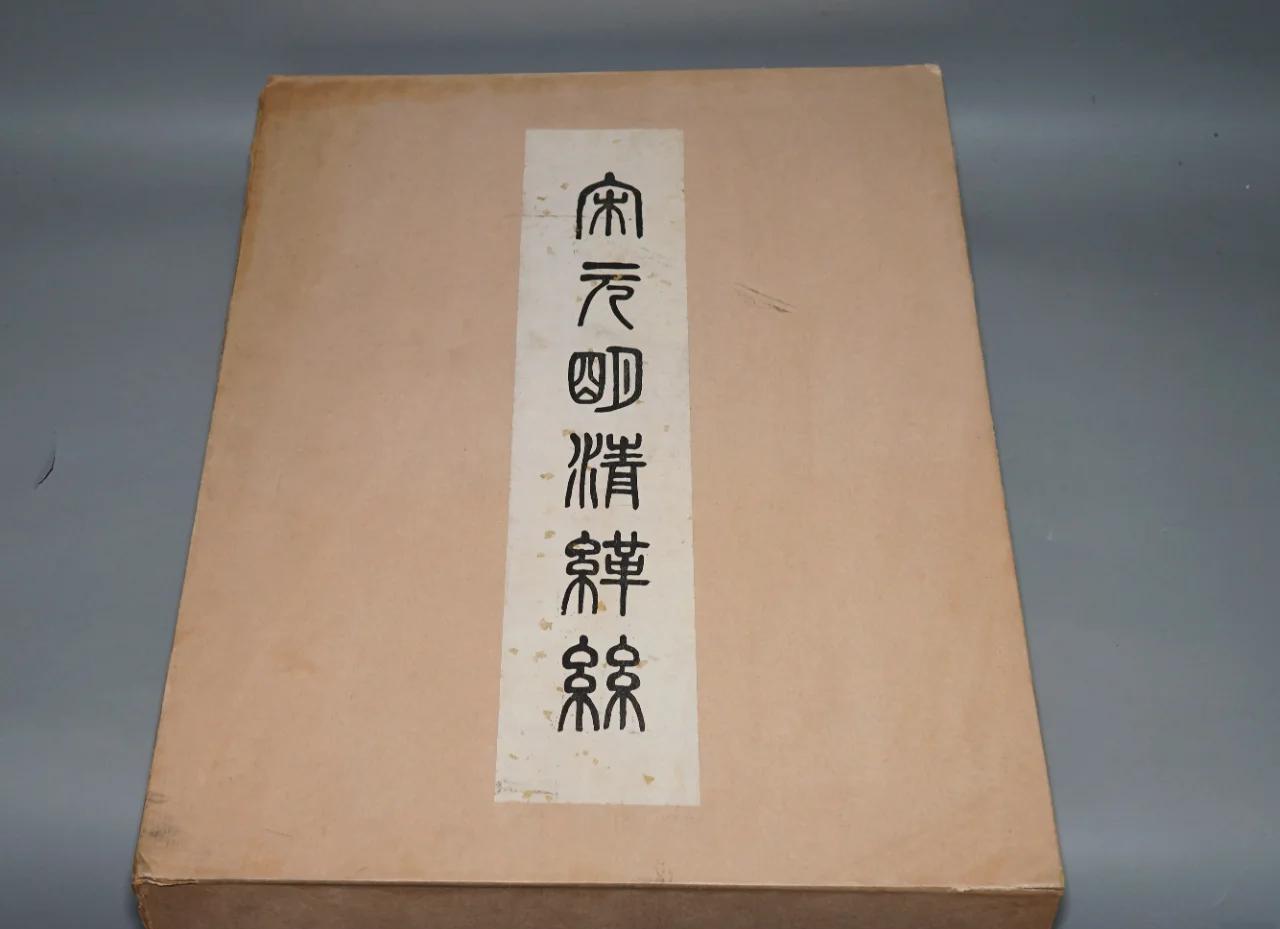 宋元明清緙絲